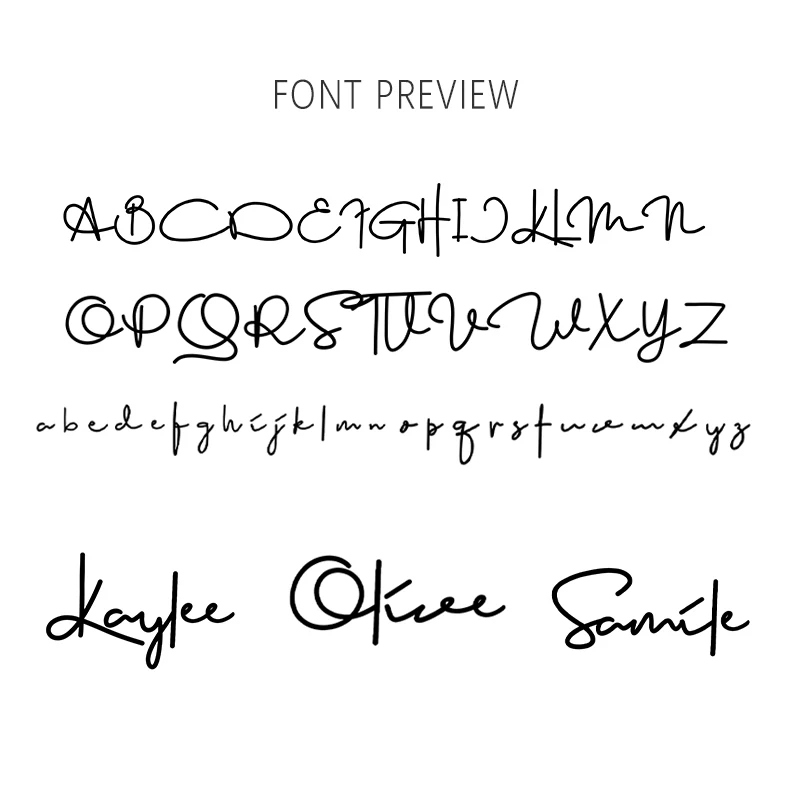 FONT PREVIEW
ABCDEFGHIJKLMN
OPQRSTUVWXYZ
abcdefghijklmnopqrstuvwxyz
Kaylee Olivee Samile